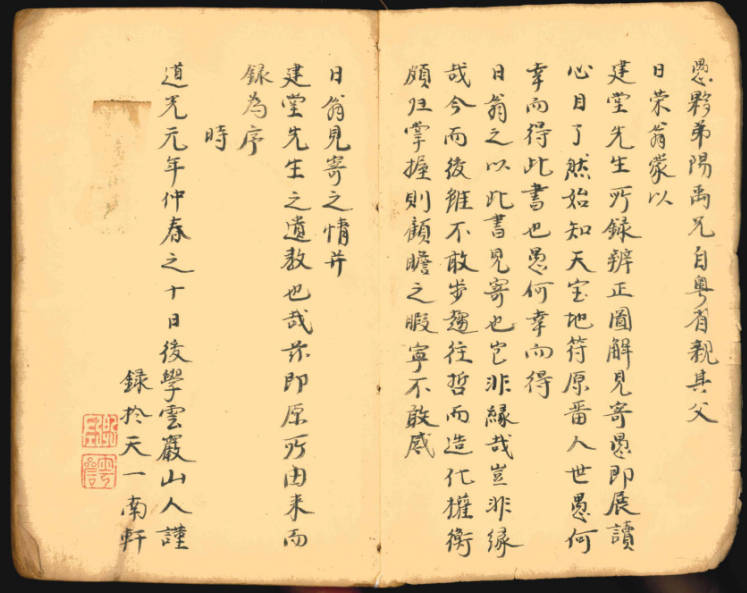 愚夥弟陽禹兄自粵省親其父
日榮翁蒙以
建堂先生所錄辨正圖解見寄愚即展讀
心目了然始知天宝地符原畨人世愚何
幸而得此書也愚何幸而得
日翁之以此書見寄也岂非緣哉豈非緣
哉今而後雖不敢步趨往哲而造化權衡
頗歸掌握則顧瞻之暇寧不敢感
日翁見寄之情并
建堂先生之遺教也哉茶即原所由来而
録為序
時
道光元年仲春之十日後學雲巖山人謹
録扵天一南軒